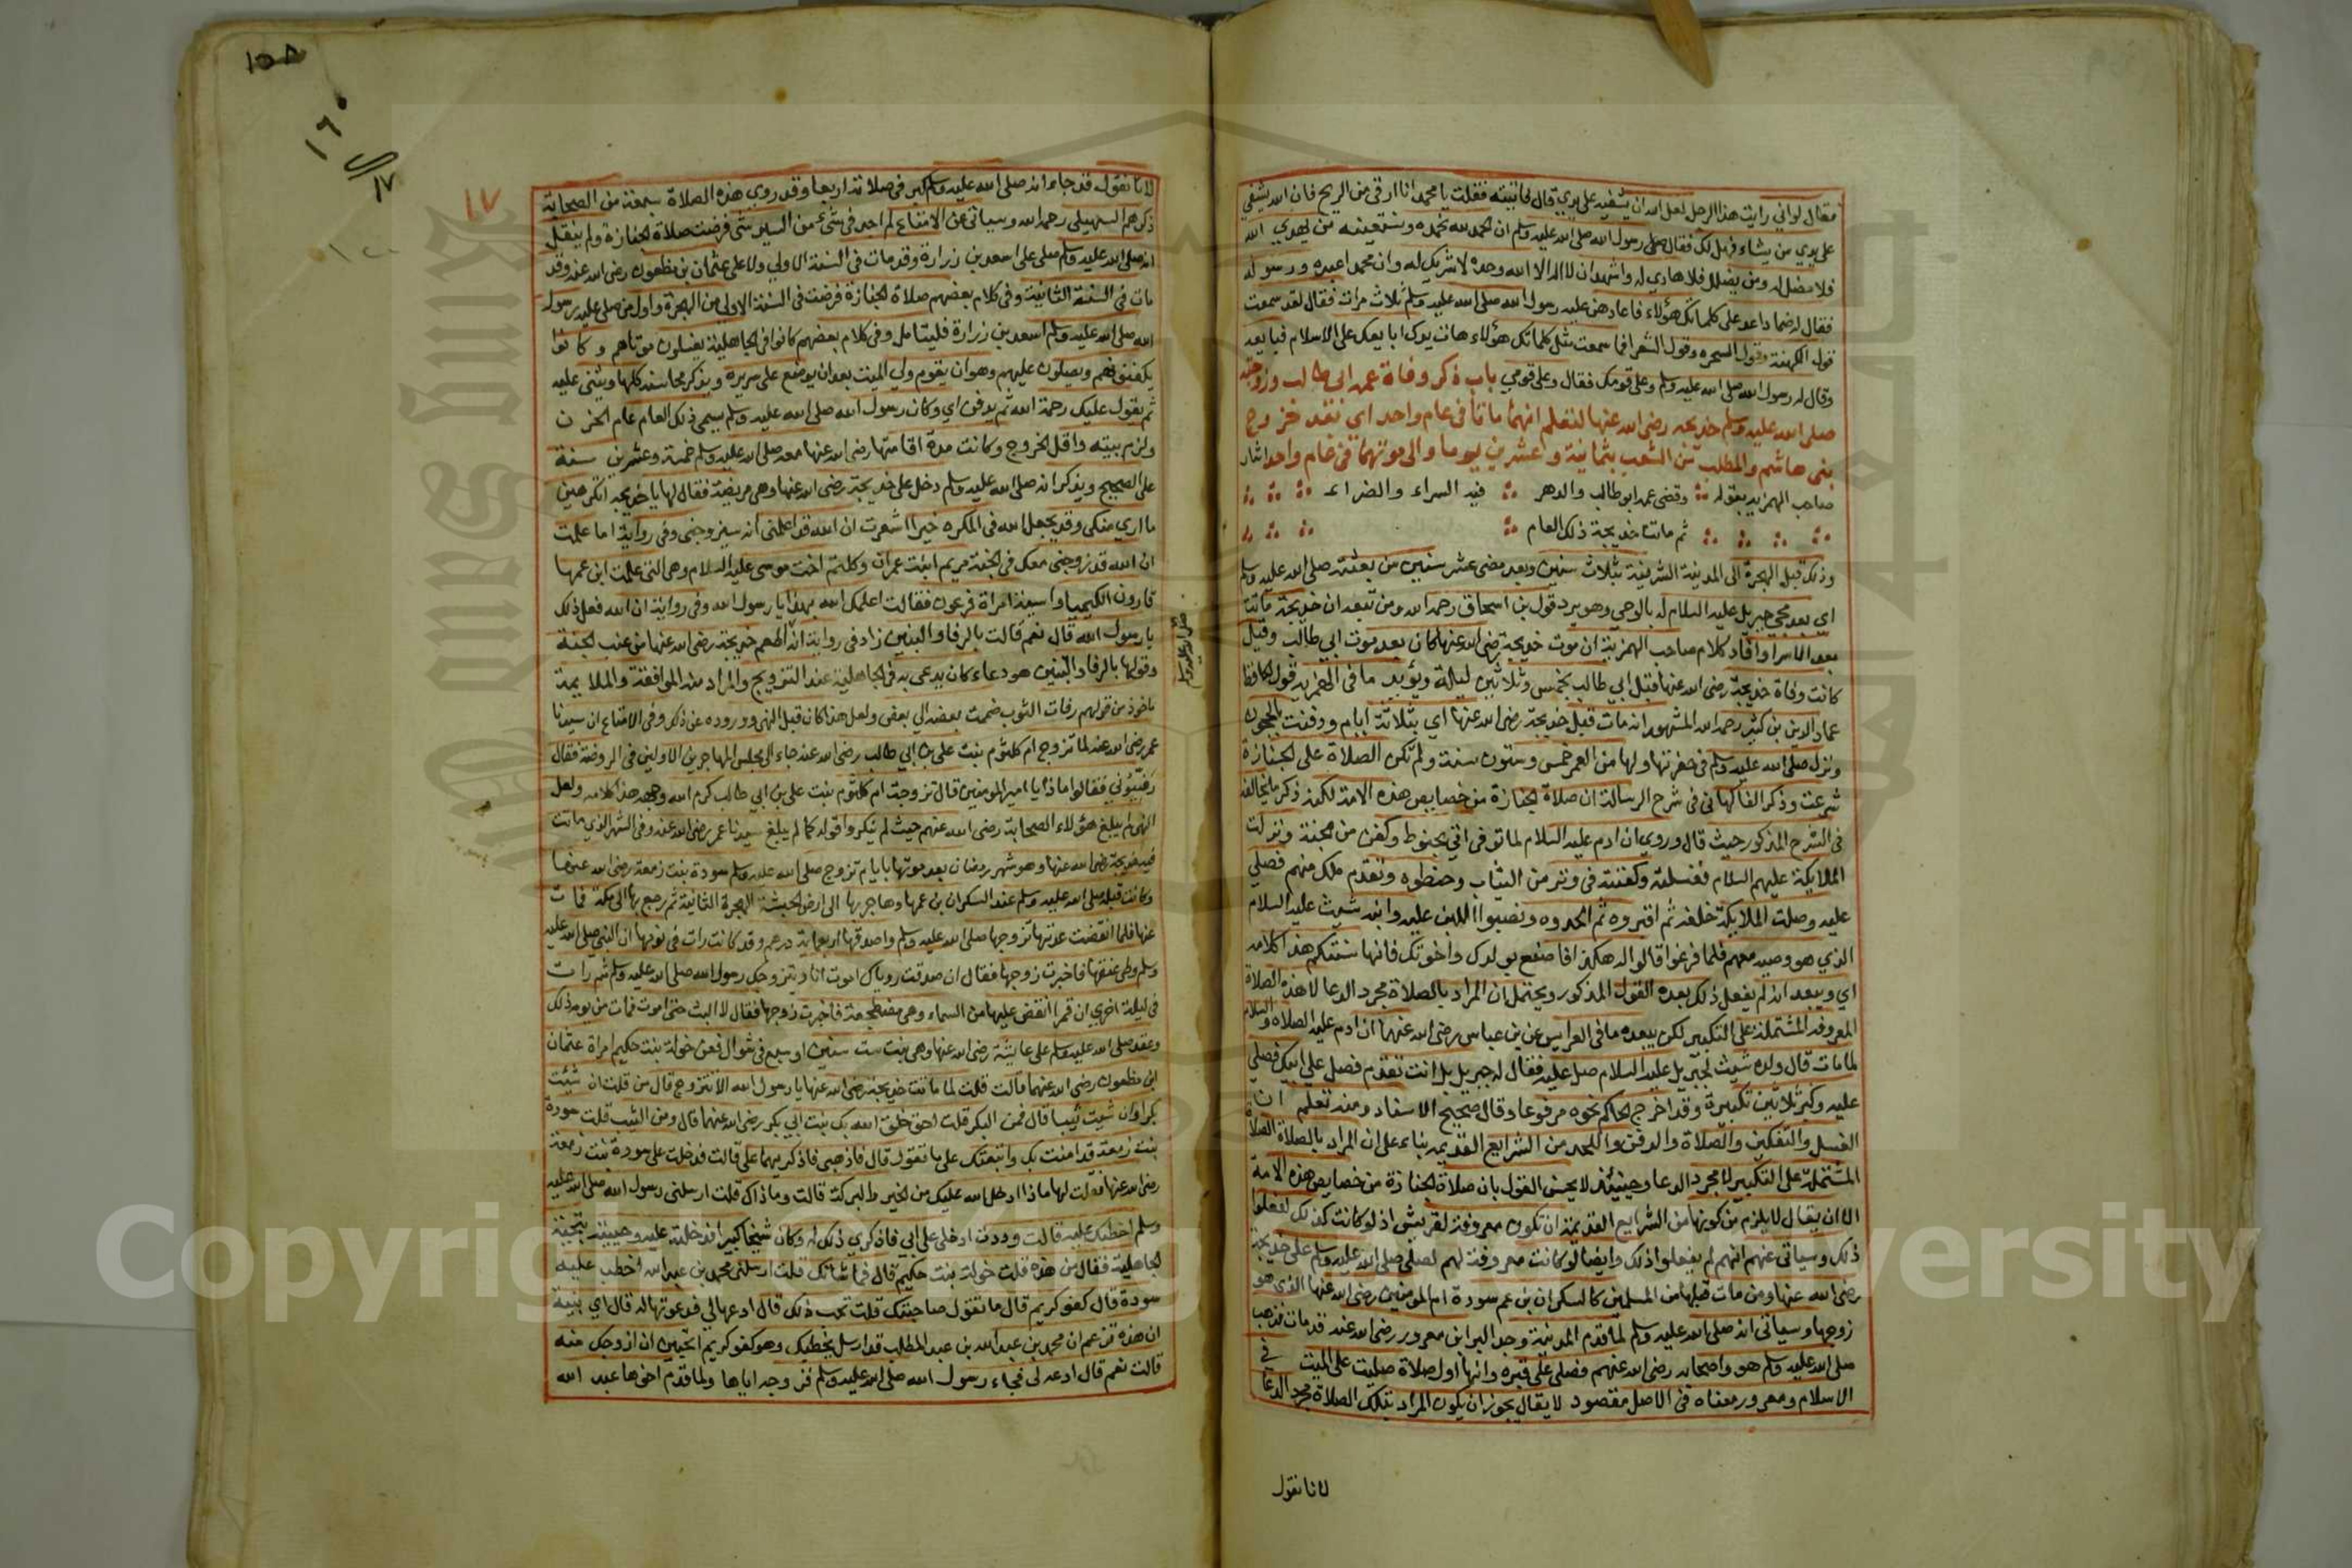 فقال لو اني رايت هذا الرجل لعل الله ان يشفيه على يدي قال فاتيته فقلت يا محمد انا ارقى من الريح فان الله يشفي
على يدي من يشاء فهل لك فقال صلى رسول الله صلى الله عليه وسلم ان الحمد لله نحمده ونستعينه من يهدي الله
فلا مضل له ومن يضلل فلا هادي له واشهد ان لا اله الا الله وحده لا شريك له وان محمدا عبده ورسوله
فقال له ضماد اعد على كلماتك هؤلاء فاعادهن عليه رسول الله صلى الله عليه وسلم ثلاث مرات فقال لقد سمعت
قول الكهنة وقول السحره وقول الشعرا فما سمعت مثل كلماتك هؤلاء هات يدك ابايعك على الاسلام فبايعه
وقال له رسول الله صلى الله عليه وسلم وعلى قومك فقال وعلى قومي باب ذكر وفاة عمه ابي طالب وزوجته
صلى الله عليه وسلم خديجه رضي الله عنها لتعلم انهما ماتا في عام واحد اي بعد خروج
بني هاشم والمطلب من الشعب بثمانية وعشرين يوما والى موتهما في عام واحد اشار
صاحب الهمزيه بقوله وقضى عمه ابو طالب والدهر فيه السراء والضراء
ثم ماتت خديجة ذلك العام
وذلك قبل الهجرة الى المدينة الشريفة بثلاث سنين وبعد مضي عشر سنين من بعثته صلى الله عليه وسلم
اي بعد مجي جبريل عليه السلام له بالوحي وهو يرد قول بن اسحاق رحمه الله ومن تبعه ان خديجة ماتت
بعد الاسرا وافاد كلام صاحب الهمزية ان موت خديجة رضي الله عنها كان بعد موت ابي طالب وقيل
كانت وفاة خديجة رضي الله عنها قبل ابي طالب بخمس وثلاثين ليلة ويؤيد ما في الهمزيه قول الحافظ
عماد الدين بن كثير رحمه الله المشهور انه مات قبل خديجة رضي الله عنها اي بثلاثة ايام ودفنت بالحجون
ونزل صلى الله عليه وسلم في حفرتها ولها من العمر خمس وستون سنة ولم تكن الصلاة على الجنازة
شرعت وذكر الفاكهاني في شرح الرسالة ان صلاة الجنازة من خصايص هذه الامة لكنه ذكر ما يخالفه
في الشرح المذكور حيث قال وروي ان ادم عليه السلام لما توفي اتي بحنوط وكفن من الجنة ونزلت
الملايكة عليهم السلام فغسلته وكفنته في وتر من الثياب وحنطوه وتقدم ملك منهم فصلى
عليه وصلت الملايكة خلفه ثم اقبروه ثم الحدوه ونصبوا اللبن عليه وابنه شيث عليه السلام
الذي هو وصيه معهم فلما فرغوا قالوا له هكذا فاصنع بولدك واخوتك فانها سنتكم هذا كلامه
اي ويبعد انه لم يفعل ذلك بعده القول المذكور ويحتمل ان المراد بالصلاة مجرد الدعا لا هذه الصلاة
المعروفة المشتملة على التكبير لكن يبعده ما في العرايس عن بن عباس رضي الله عنهما ان ادم عليه الصلاه والسلام
لما مات قال ولده شيث لجبريل عليه السلام صل عليه فقال له جبريل بل انت تقدم فصل على ابيك فصلى
عليه وكبر ثلاثين تكبيرة وقد اخرج الحاكم نحوه مرفوعا وقال صحيح الاسناد ومنه تعلم ان
الغسل والتكفين والصلاة والدفن واللحد من الشرايع القديمه بناء على ان المراد بالصلاة الصلاة
المشتملة على التكبير لا مجرد الدعا وحينئذ لا يحسن القول بان صلاة الجنازة من خصايص هذه الامة
الا ان يقال لا يلزم من كونها من الشرايع القديمة ان تكون معروفة لقريش اذ لو كانت كذلك لفعلوا
ذلك وسياتي عنهم انهم لم يفعلوا ذلك وايضا لو كانت معروفة لهم لصلى صلى الله عليه وسلم على خديجة
رضي الله عنها ومن مات قبلها من المسلمين كالسكران بن عم سودة ام المومنين رضي الله عنها الذي هو
زوجها وسياتي انه صلى الله عليه وسلم لما قدم المدينة وجد البرا بن معرور رضي الله عنه قد مات فذهب
صلى الله عليه وسلم هو واصحابه رضي الله عنهم فصلى على قبره وانها اول صلاة صليت على الميت في
الاسلام ومعرور معناه في الاصل مقصود لا يقال يجوز ان يكون المراد بتلك الصلاة مجرد الدعا
لانا نقول
١٥٨
١٦٠
١٧
١٧
لانا نقول قد جاء انه صلى الله عليه وسلم كبر في صلاته اربعا وقد روي هذه الصلاة تسعة من الصحابة
ذكرهم السهيلي رحمه الله وسياتي عن الامتاع لم اجد في شئ من السير متى فرضت صلاة الجنازة ولم ينقل
انه صلى الله عليه وسلم صلى على اسعد بن زرارة وقد مات في السنة الاولي ولا على عثمان بن مظعون رضي الله عنه وقد
مات في السنة الثانية وفي كلام بعضهم صلاة الجنازة فرضت في السنة الاولى من الهجرة واول من صلى عليه رسول
الله صلى الله عليه وسلم اسعد بن زرارة فليتامل وفي كلام بعضهم كانوا في الجاهلية يغسلون موتاهم وكانوا
يكفنونهم ويصلون عليهم وهو ان يقوم ولي الميت بعد ان يوضع على سريره ويذكر محاسنه كلها ويثني عليه
ثم يقول عليك رحمة الله ثم يدفن اي وكان رسول الله صلى الله عليه وسلم يسمي ذلك العام عام الحزن
ولزم بيته واقل الخروج وكانت مدة اقامتها رضي الله عنها معه صلى الله عليه وسلم خمسة وعشرين سنة
على الصحيح ويذكر انه صلى الله عليه وسلم دخل على خديجة رضي الله عنها وهي مريضة فقال لها يا خديجه اتكرهين
ما اري منكي وقد يجعل الله في الكره خيرا اشعرت ان الله قد اعلمني انه سيزوجني وفي رواية اما علمت
ان الله قد زوجني معك في الجنة مريم ابنت عمران وكلثم اخت موسى عليه السلام وهي التي علمت ابن عمها
قارون الكيميا واسية امراة فرعون فقالت اعلمك الله بهذا يا رسول الله وفي رواية ان الله فعل ذلك
يا رسول الله قال نعم قالت بالرفا والبنين زاد في رواية انه اطعم خديجة رضي الله عنها من عنب الجنة
وقولها بالرفا والبنين هو دعاء كان يدعى به في الجاهلية عند التزويج والمراد منه الموافقة والملايمة
ماخوذ من قولهم رفات الثوب ضممت بعضه الي بعض ولعل هذا كان قبل النهي وورود عن ذلك وفي الامتاع ان سيدنا
عمر رضي الله عنه لما تزوج ام كلثوم بنت على بن ابي طالب رضي الله عنه جاء الى مجلس المهاجرين الاولين في الروضة فقال
رفيؤني فقالوا ماذا يا امير المومنين قال تزوجت ام كلثوم بنت على بن ابي طالب كرم الله وجهه هذا كلامه ولعل
النهي لم يبلغ هؤلاء الصحابة رضي الله عنهم حيث لم ينكروا قوله كما لم يبلغ سيدنا عمر رضي الله عنه وفي الشهر الذي ماتت
فيه خديجة رضي الله عنها وهو شهر رمضان بعد موتها بايام تزوج صلى الله عليه وسلم سودة بنت زمعة رضي الله عنها
وكانت قبله صلى الله عليه وسلم عند السكران بن عمها وهاجر بها الى ارض الحبشة الهجرة الثانية ثم رجع بها الى مكة فمات
عنها فلما انقضت عدتها تزوجها صلى الله عليه وسلم واصدقها اربعماية درهم وقد كانت رات في نومها ان النبي صلى الله عليه
وسلم وطى عنقها فاخبرت زوجها فقال ان صدقت روياك اموت انا ويتزوجك رسول الله صلى الله عليه وسلم ثم رات
في ليلة اخري ان قمرا انقض عليها من السماء وهي مضطجعة فاخبرت زوجها فقال لا البث حتى اموت فمات من يومه ذلك
وعقد صلى الله عليه وسلم على عايشة رضي الله عنها وهي بنت ست سنين او سبع في شوال فعن خولة بنت حكيم امراة عثمان
ابن مظعون رضي الله عنهما قالت قلت لما ماتت خديجة رضي الله عنها يا رسول الله الا تتزوج قال من قلت ان شئت
بكرا وان شيت ثيبا قال فمن البكر قلت احق خلق الله بك بنت ابي بكر رضي الله عنهما قال ومن الثيب قلت سودة
بنت زمعة قد امنت بك واتبعتك على ما تقول قال فاذهبي فاذكريهما علي قالت فدخلت على سودة بنت زمعة
رضي الله عنها فقلت لها ماذا ادخل الله عليك من الخير والبركة قالت وما ذاك قلت ارسلني رسول الله صلى الله عليه
وسلم اخطبك عليه قالت وددت ادخلي على ابي فاذكري ذلك له وكان شيخا كبيرا فدخلت عليه وحييته بتحية
الجاهلية فقال من هذه قلت خولة بنت حكيم قال فما شانك قلت ارسلني محمد بن عبد الله اخطب عليه
سودة قال كفو كريم قال ما تقول صاحبتك قلت تحب ذلك قال ادعها لي فدعوتها له قال اي بنية
ان هذه تزعم ان محمد بن عبد الله بن عبد المطلب قد ارسل يخطبك وهو كفو كريم اتحبين ان ازوجك منه
قالت نعم قال ادعه لي فجاء رسول الله صلى الله عليه وسلم فزوجه اياها ولما قدم اخوها عبد الله
صلى الله عليه وسلم
King Saud University
Copyright © King Saud University